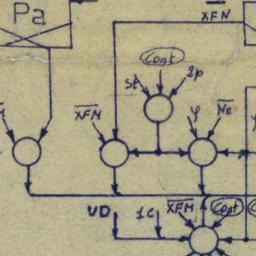 Pa
XFN
Cont
St
2p
XFM
φ
Ne
UD
1c
XFM
Cont